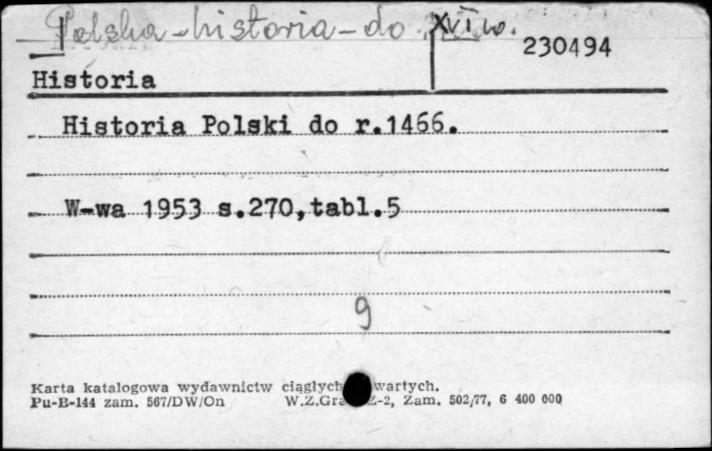 Polska - historia - do XVI w.
230494
Historia
Historia Polski do r.1466.
W-wa 1953 s.270,tabl.5
9
Karta katalogowa wydawnictw ciągłych wartych.
Pu-B-144 zam. 567/DW/On W.Z.Gra Z-2, Zam. 502/77, 6 400 000